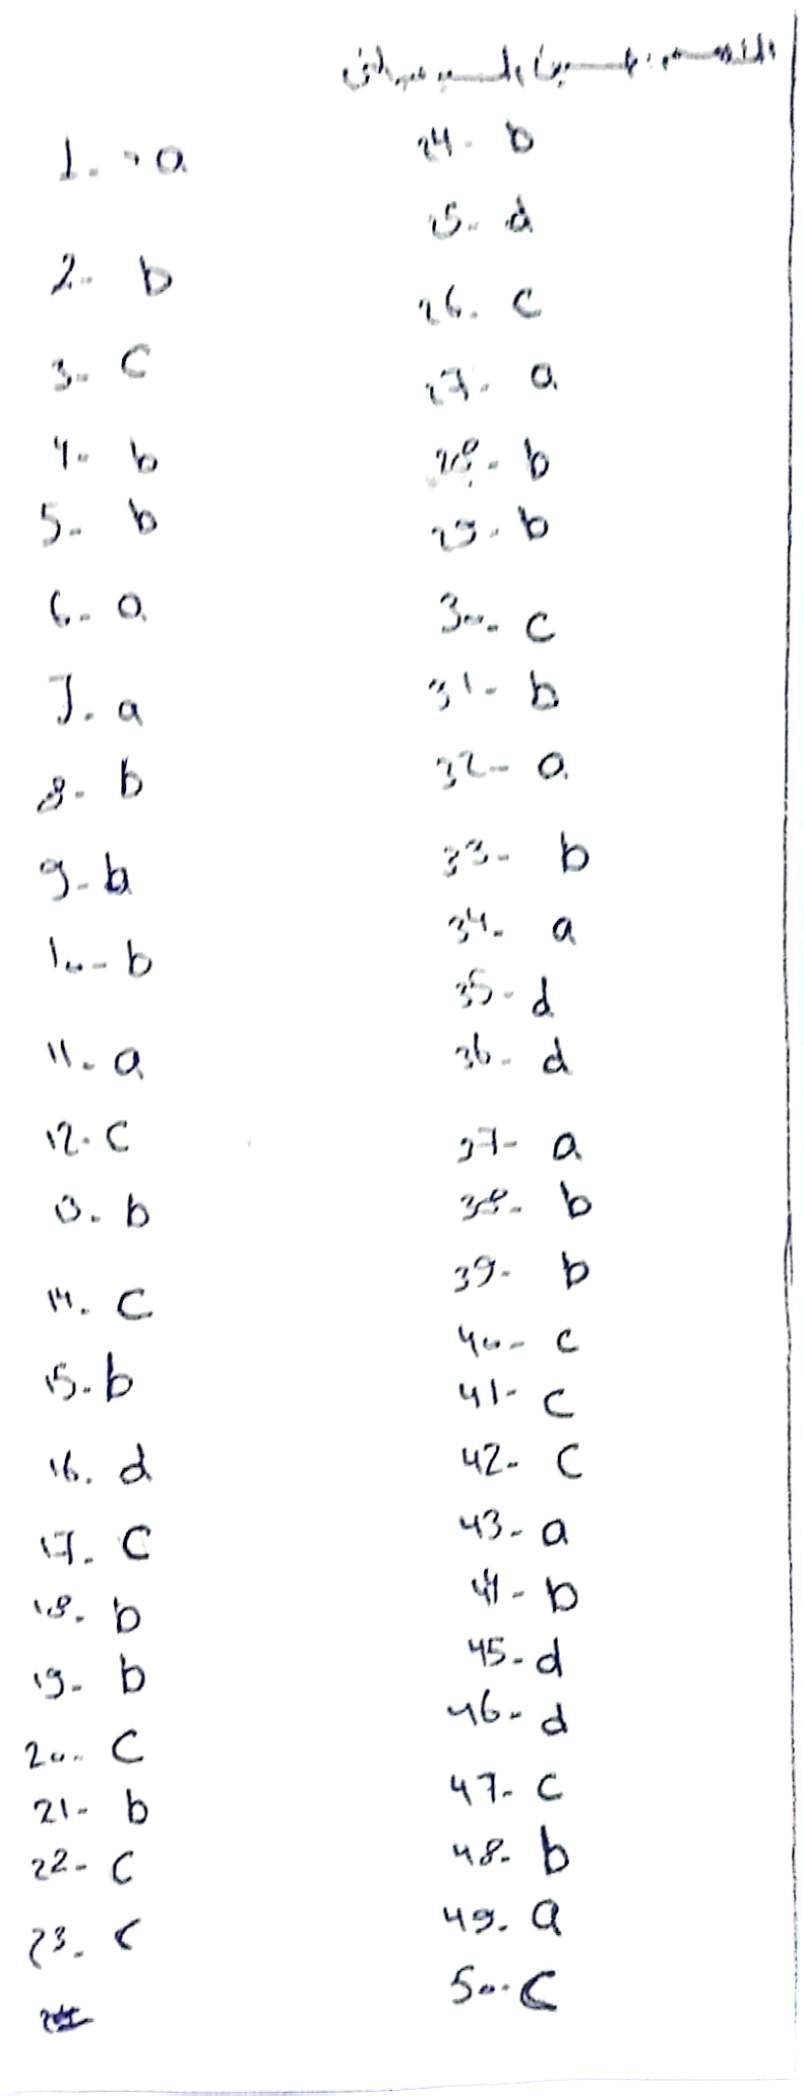 1. a
2- b
3- c
4- b
5- b
6- a
7. a
8- b
9- b
10- b
11- a
12. c
13. b
14. c
15. b
16. d
17. c
18. b
19- b
20- c
21- b
22- c
23. c
24- b
25- d
26. c
27- a
28- b
29. b
30- c
31- b
32- a
33- b
34- a
35- d
36- d
37- a
38- b
39- b
40- c
41- c
42- c
43- a
44- b
45- d
46- d
47- c
48- b
49- a
50- c